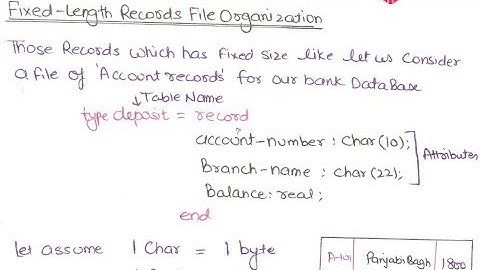 Fixed-Length Records File Organization
Those Records which has fixed size like let us consider
a file of 'Account records' for our bank DataBase
↓Table Name
type deposit = record
account-number : char(10);
Branch-name : char(22);
Balance: real;
] Attributes
end
let assume 1 Char = 1 byte
A-101 | Panjabi Bagh | 1800